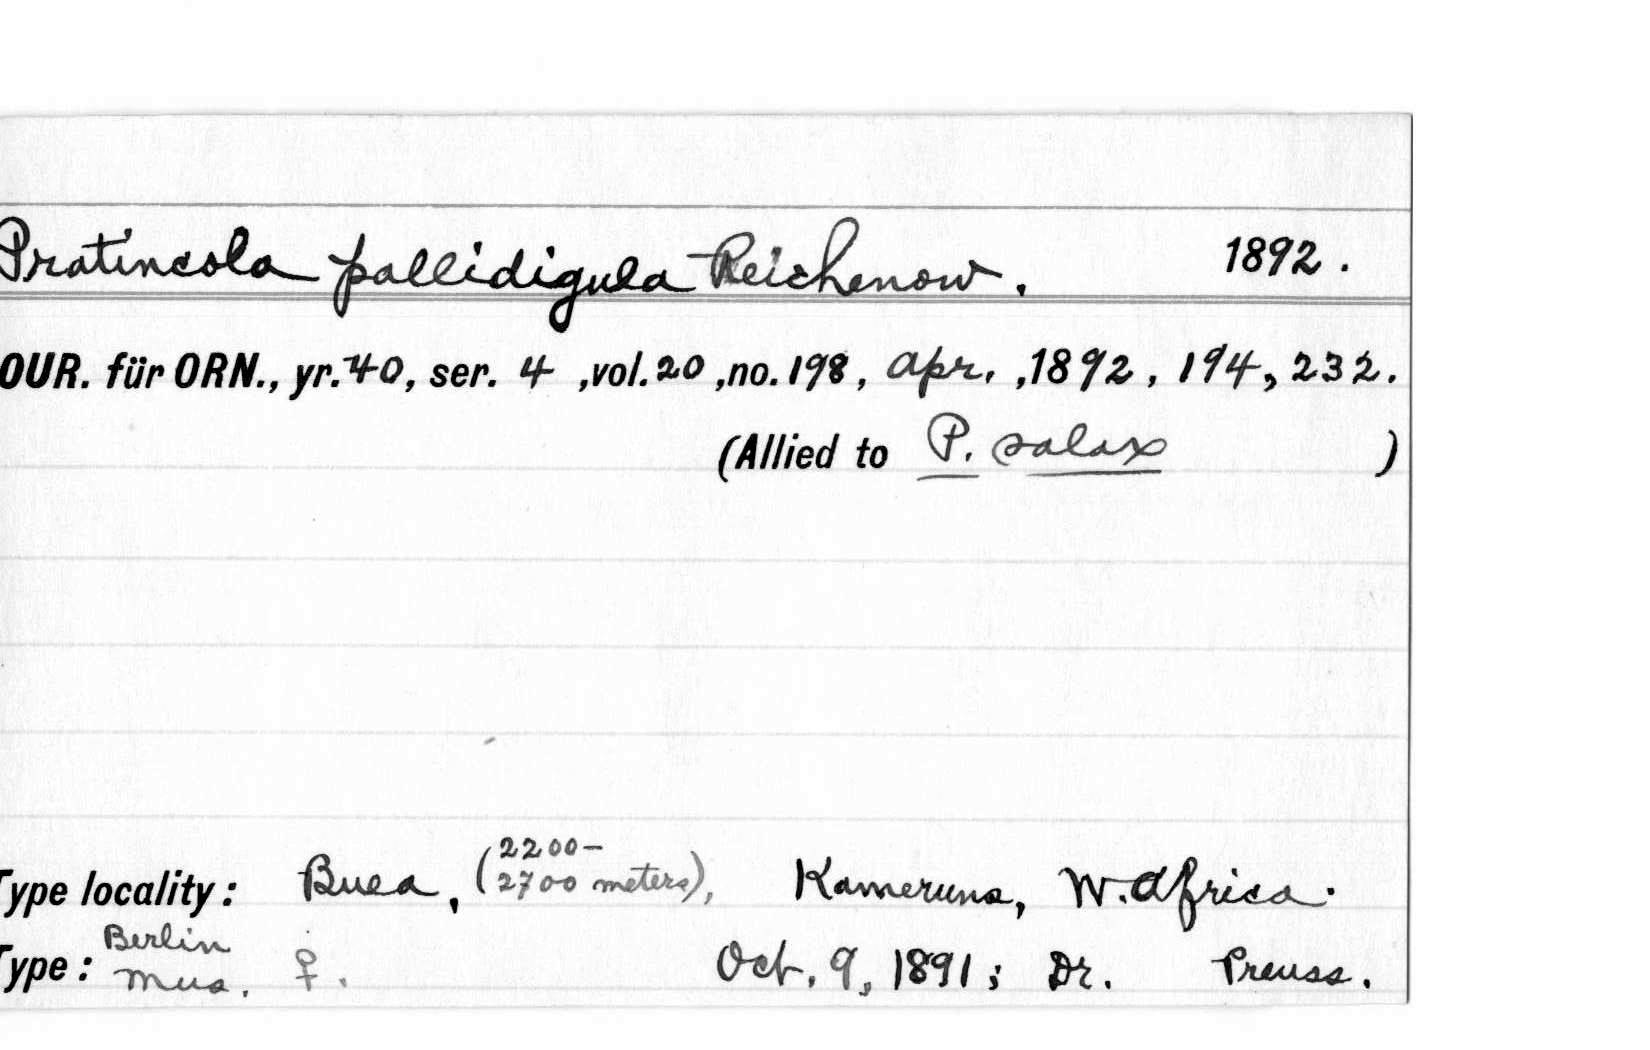 Pratincola pallidigula Reichenow. 1892.
OUR. für ORN., yr. 40, ser. 4 ,vol. 20 ,no. 198, Apr. ,1892, 194, 232.
(Allied to P. salax )
Type locality: Buea, (2200-
2700 meters), Kameruns, W. Africa.
Type: Berlin
Mus. ♀. Oct. 9, 1891; Dr. Preuss.